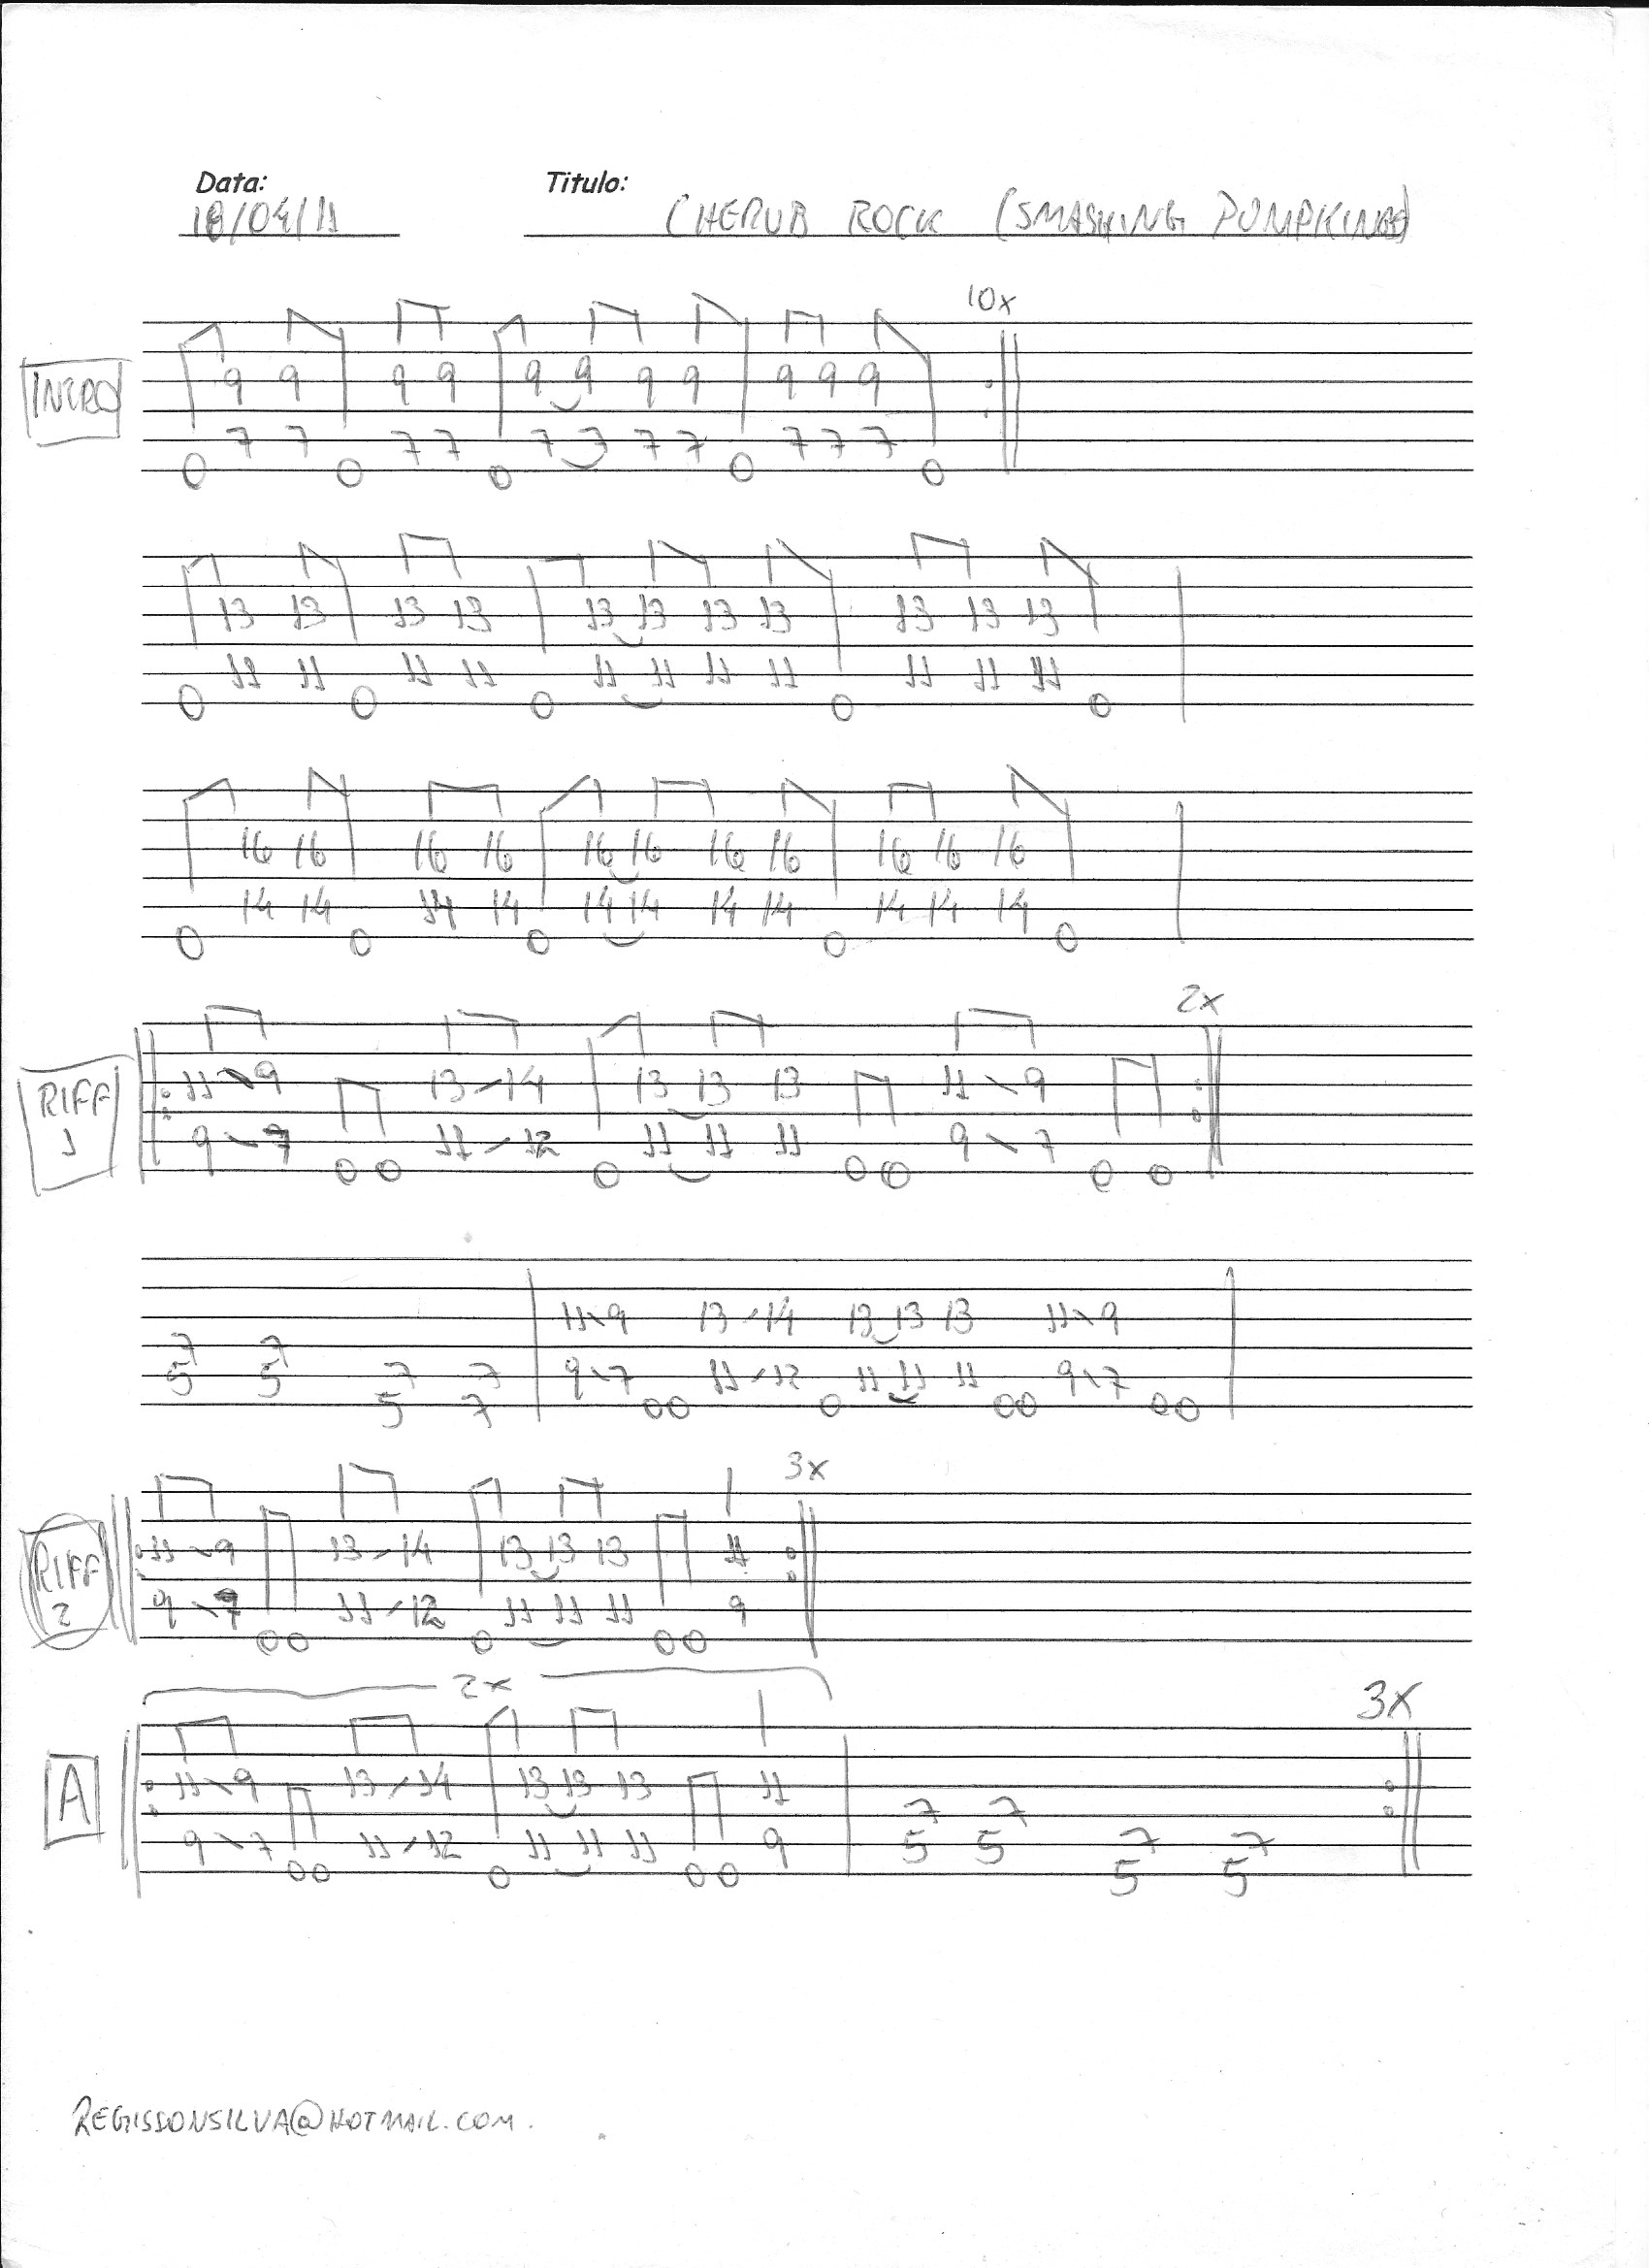 Data: Titulo:
CHERUB ROCK (SMASHING PUMPKINS)
10x
INTRO
9 9 9 9 9 9 9 9 9 9 9
7 7 7 7 7 7 7 7 7 7 7
0 0 0 0 0
13 13 13 13 13 13 13 13 13 13 13
11 11 11 11 11 11 11 11 11 11 11
0 0 0 0 0
16 16 16 16 16 16 16 16 16 16 16
14 14 14 14 14 14 14 14 14 14 14
0 0 0 0 0
2x
RIFF
1
11\9 13/14 13 13 13 11\9
9\7 11/12 11 11 11 9\7
0 0 0 0 0 0 0
11\9 13/14 13 13 13 11\9
7 7
5 5 7 7 9\7 11/12 11 11 11 9\7
5 7 00 0 00 00
3x
RIFF
2
11\9 13/14 13 13 13 11
9\7 11/12 11 11 11 9
00 0 00
2x
3x
A
11\9 13/14 13 13 13 11
7 7
9\7 11/12 11 11 11 9 5 5 7 7
00 0 00 5 5
REGISSONSILVA@HOTMAIL.COM.